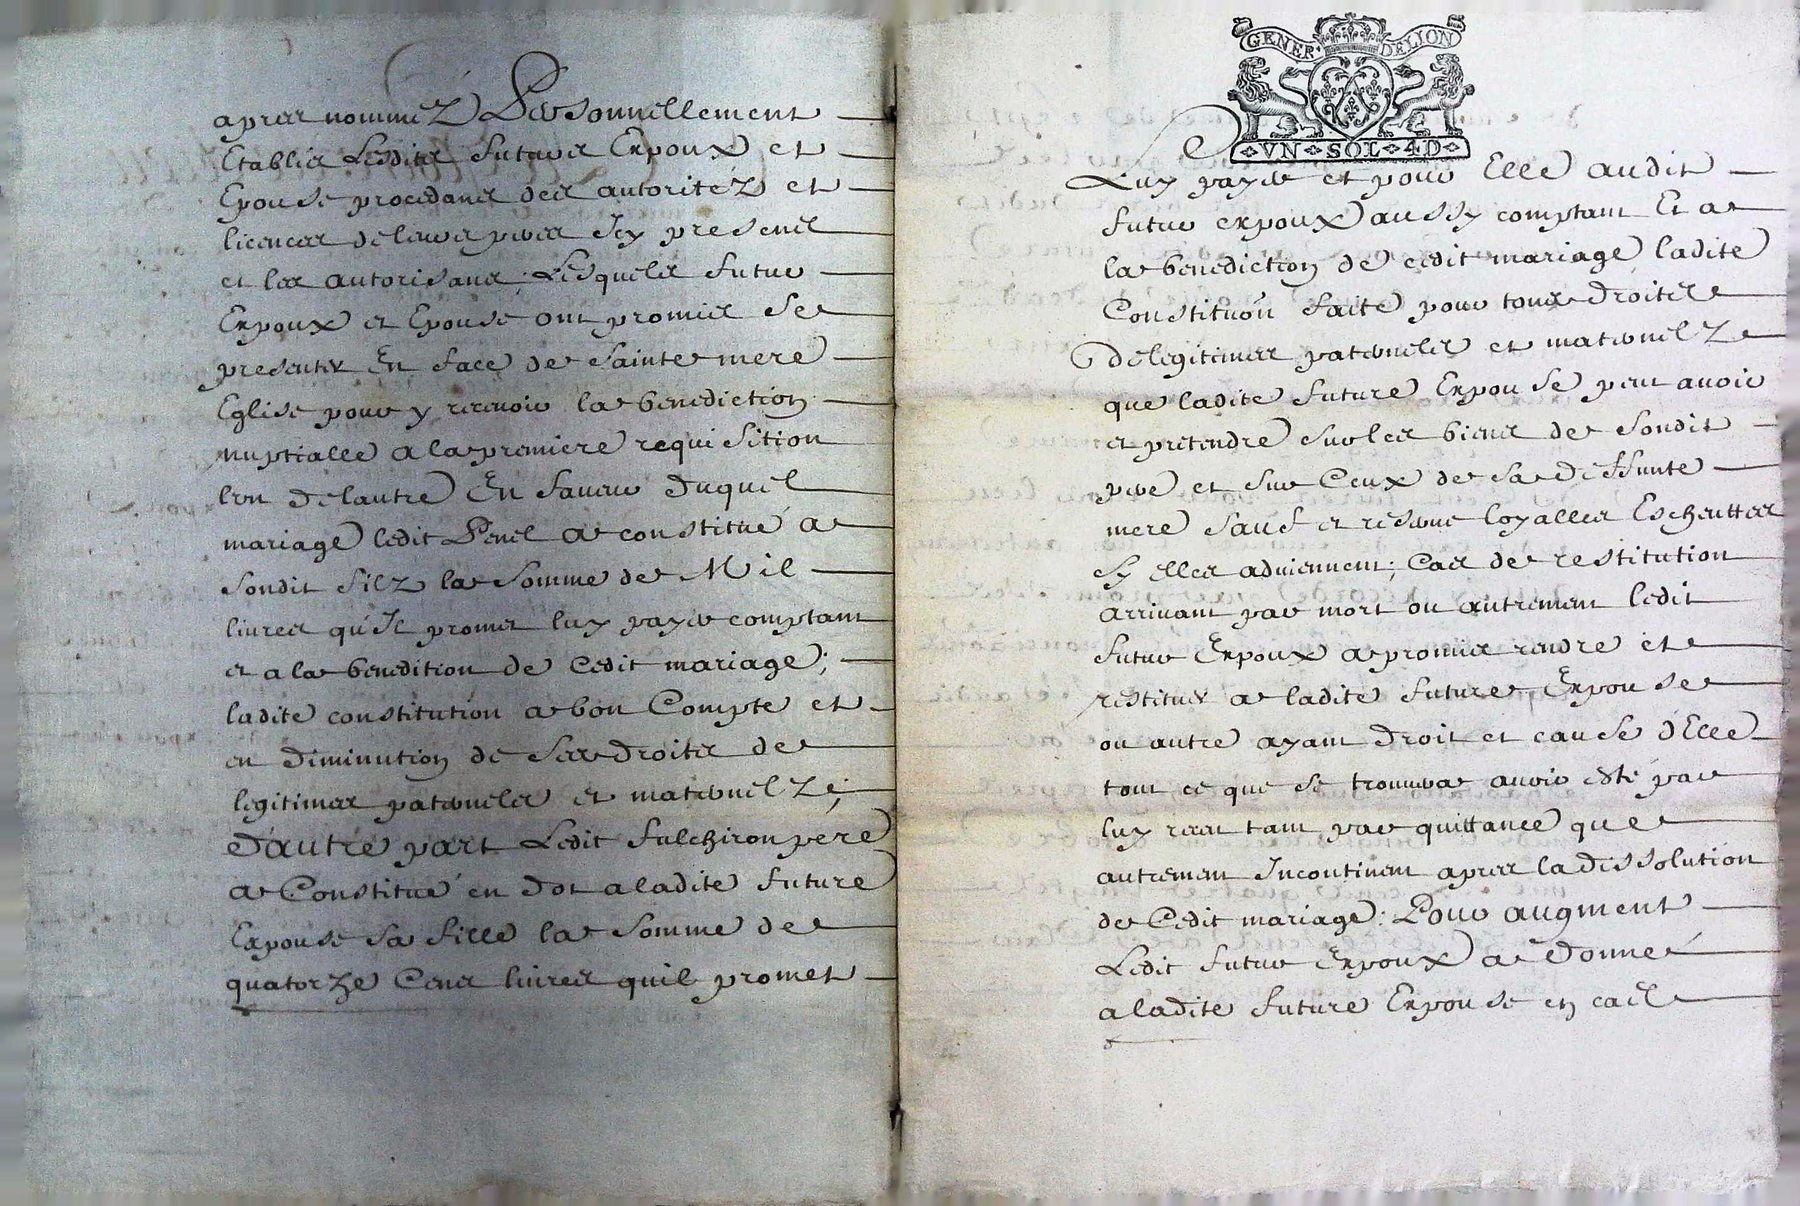 apres nommez Personnellement
Establis Lesdits futurs Expoux et
Epouse procedans des autoritez et
licences de leurs peres Icy presens
et les autorisans; Lesquels futur
Expoux et Epouse ont promis se
presenter En face de sainte mere
Eglise pour y recevoir la benediction
nuptialle a la premiere requisition
lun delautre En faveur duquel
mariage ledit Penel a constitué a
sondit filz la somme de Mil
livres qu'Il promet luy payer comptant
et a la benedition de Cedit mariage;
ladite constitution a bon Compte et
en diminution de ses droits de
legitimes paternels et maternelz;
D'autre part Ledit fulchiron pere
a Constitué en dot a ladite future
Expouse sa fille la somme de
quatorze Cens livres quil promet
GENER· DELION
VN SOL 4D
Luy payer et pour Elle audit
futur expoux aussy comptant Et a
la benediction de cedit mariage ladite
Constitution faite pour tous droits
de legitimes paternels et maternelz
que ladite future Expouse peut avoir
et pretendre sur les biens de sondit
pere et sur Ceux de sa deffunte
mere sauf et reserve loyalles Escheuttes
sy elles adviennent; Cas de restitution
arrivant par mort ou autrement ledit
futur Expoux a promis rendre et
restituer a ladite future Expouse
ou autre ayant droit et cause d'Elle
tout ce que se trouvera avoir esté par
luy receu tant par quittance que
autrement Incontinent apres la dissolution
de Cedit mariage: Pour augment
Ledit futur Expoux a Donné
a ladite future Expouse en cas